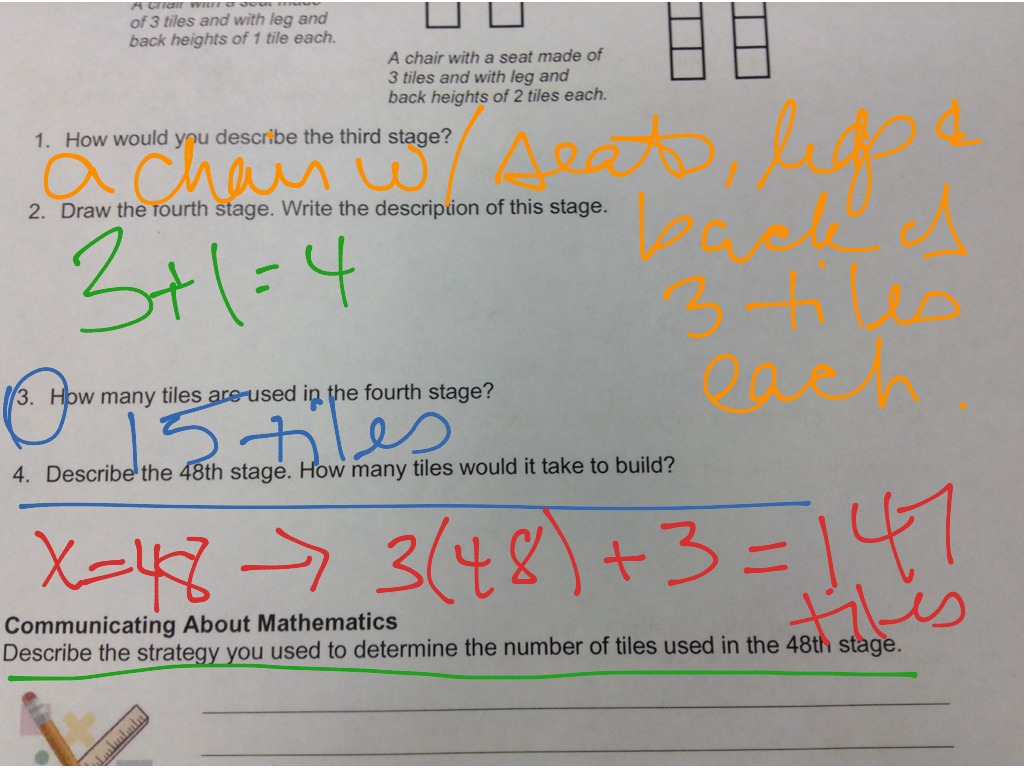 A chair with a seat made
of 3 tiles and with leg and
back heights of 1 tile each.
A chair with a seat made of
3 tiles and with leg and
back heights of 2 tiles each.
1. How would you describe the third stage?
a chair w/ seats, legs &
back of
3 tiles
each.
2. Draw the fourth stage. Write the description of this stage.
3+1=4
3. How many tiles are used in the fourth stage?
15 tiles
4. Describe the 48th stage. How many tiles would it take to build?
x=48 → 3(48)+3=147
tiles
Communicating About Mathematics
Describe the strategy you used to determine the number of tiles used in the 48th stage.